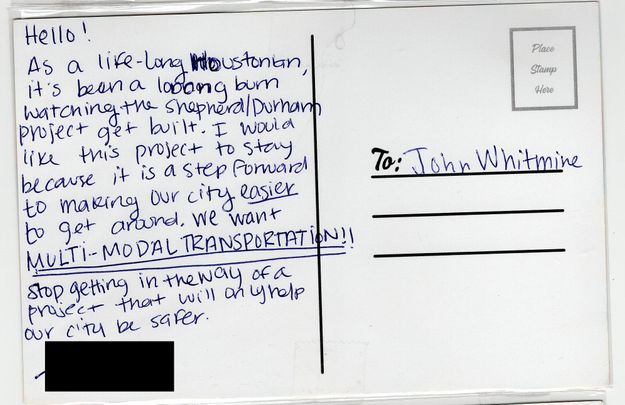 Hello!
As a life-long Houstonian,
it's been a looong burn
watching the Shepherd/Durham
project get built. I would
like this project to stay
because it is a step forward
to making our city easier
to get around. We want
MULTI-MODAL TRANSPORTATION!!
Stop getting in the way of a
project that will only help
our city be safer.
Place
Stamp
Here
To: John Whitmine